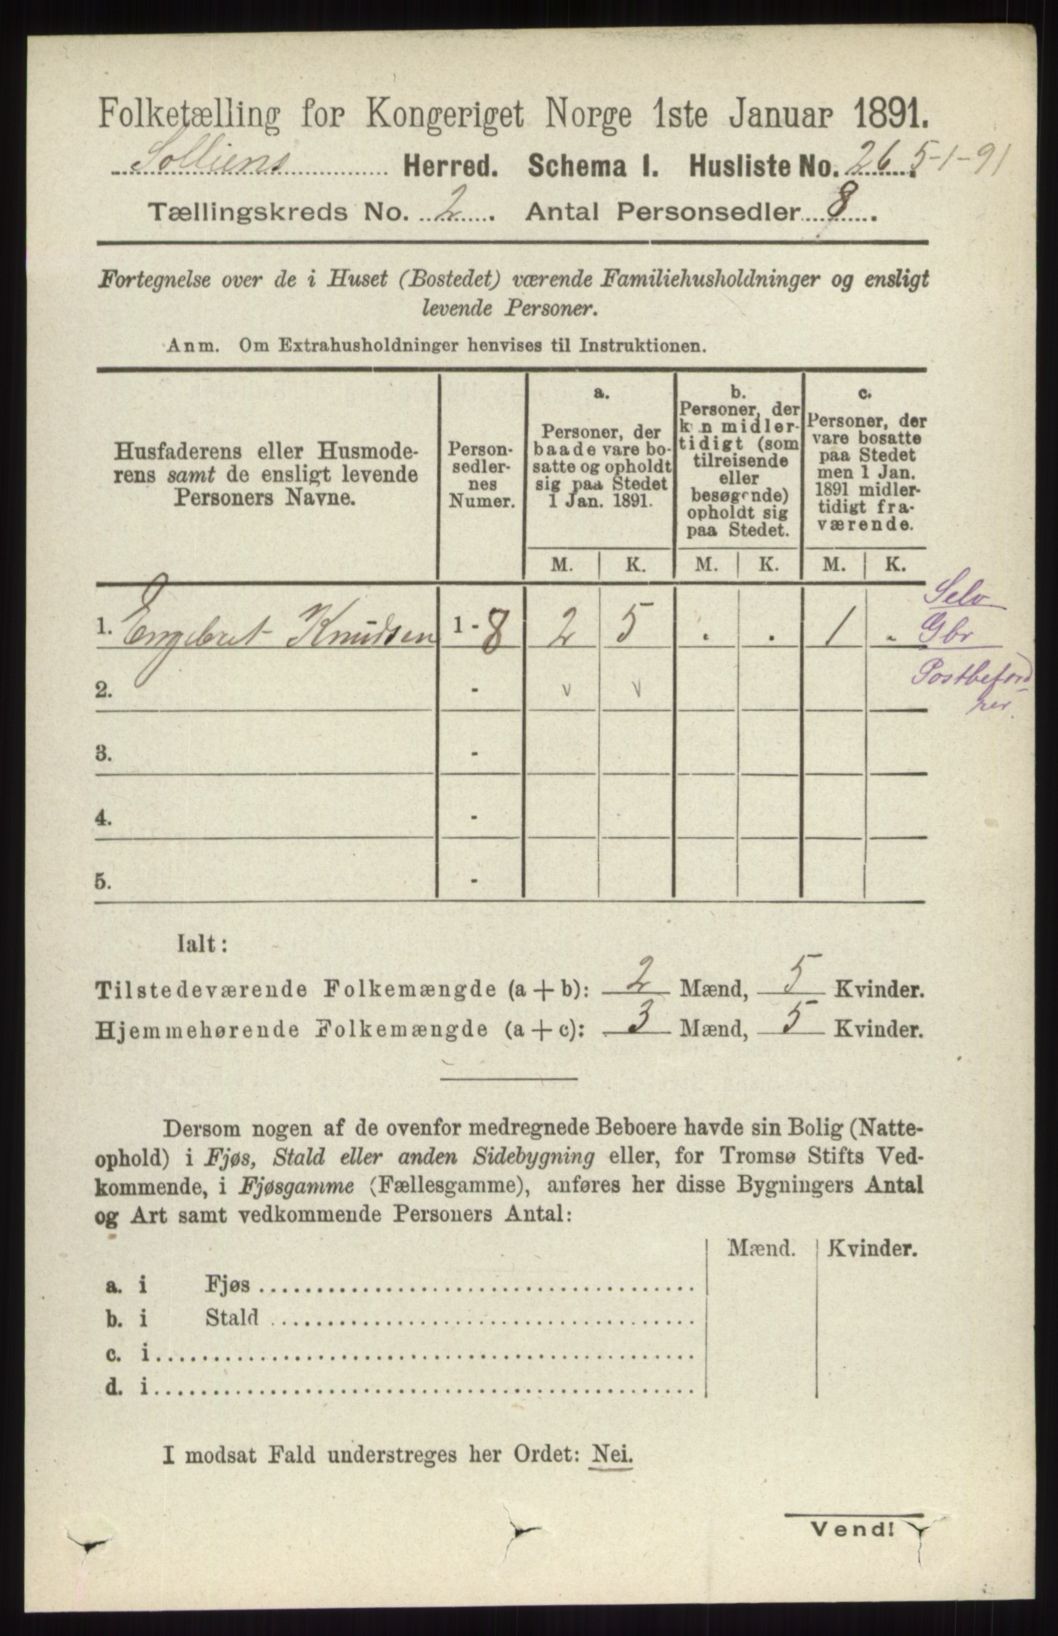 Folketælling for Kongeriget Norge 1ste Januar 1891.
Solliens Herred. Schema I. Husliste No. 26. 5-1-91
Tællingskreds No. 2. Antal Personsedler 8.
Fortegnelse over de i Huset (Bostedet) værende Familiehusholdninger og ensligt
levende Personer.
Anm. Om Extrahusholdninger henvises til Instruktionen.
Husfaderens eller Husmode-
rens samt de ensligt levende
Personers Navne.
Person-
sedler-
nes
Numer.
a.
Personer, der
baade vare bo-
satte og opholdt
sig paa Stedet
1 Jan. 1891.
b.
Personer, der
kun midler-
tidigt (som
tilreisende
eller
besøgende)
opholdt sig
paa Stedet.
c.
Personer, der
vare bosatte
paa Stedet
men 1 Jan.
1891 midler-
tidigt fra-
værende.
M. K. M. K. M. K.
1. Engebret Knudsen 1-8 2 5 . . 1 .
Selv
Gbr
Postbeford
rer.
2. - v v
3. -
4. -
5. -
Ialt:
Tilstedeværende Folkemængde (a+b): 2 Mænd, 5 Kvinder.
Hjemmehørende Folkemængde (a+c): 3 Mænd, 5 Kvinder.
Dersom nogen af de ovenfor medregnede Beboere havde sin Bolig (Natte-
ophold) i Fjøs, Stald eller anden Sidebygning eller, for Tromsø Stifts Ved-
kommende, i Fjøsgamme (Fællesgamme), anføres her disse Bygningers Antal
og Art samt vedkommende Personers Antal:
Mænd. Kvinder.
a. i Fjøs
b. i Stald
c. i
d. i
I modsat Fald understreges her Ordet: Nei.
Vend!